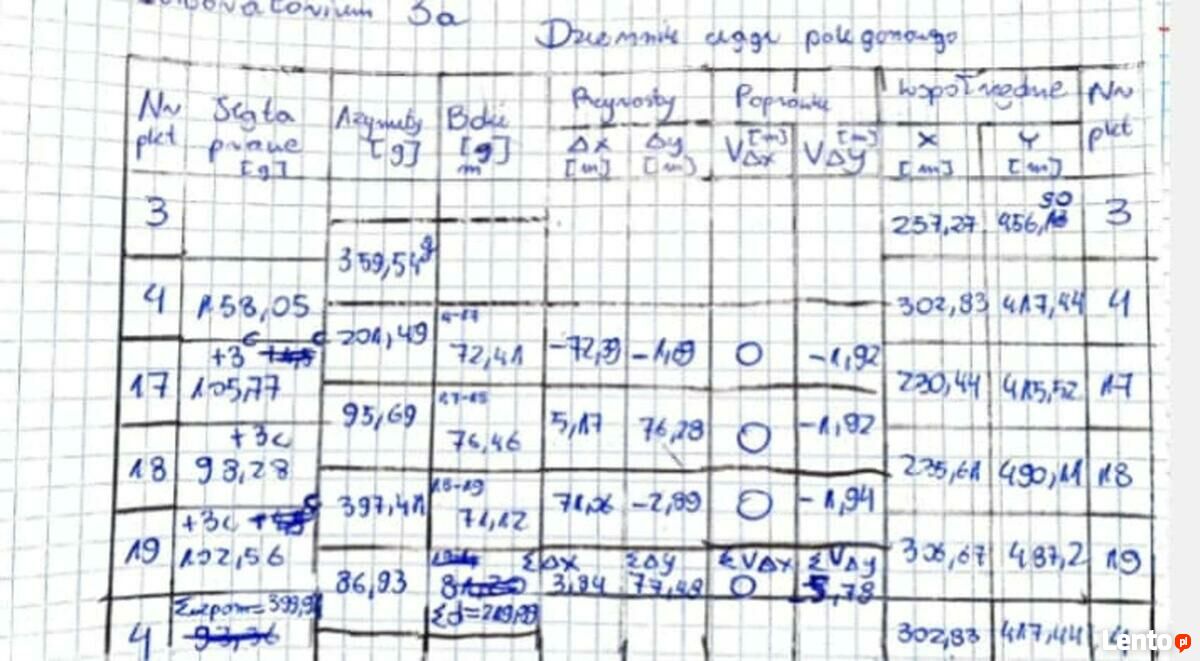 3a
Dziennik ciągu poligonowego
Nr pkt Azymuty [g] Boki [g] m Przyrosty Poprawki Współrzędne Nr pkt
Δx [m] Δy [m] VΔx [m] VΔy [m] X [m] Y [m]
3 257,27 3
90
359,54g
4 158,05 302,83 417,44 4
201,49 4-17 72,41 -72,39 -1,69 0 -1,92
+3c
17 105,77 230,44 415,52 17
95,69 17-18 76,46 5,17 76,28 0 -1,92
+3c
18 98,28 235,61 490,11 18
397,41 18-19 71,12 71,06 -2,89 0 -1,94
+3c
19 102,56 306,67 487,2 19
ΣΔx ΣΔy ΣVΔx ΣVΔy
86,93 3,84 0 5,78
4 302,83 417,44 4
Lento pl